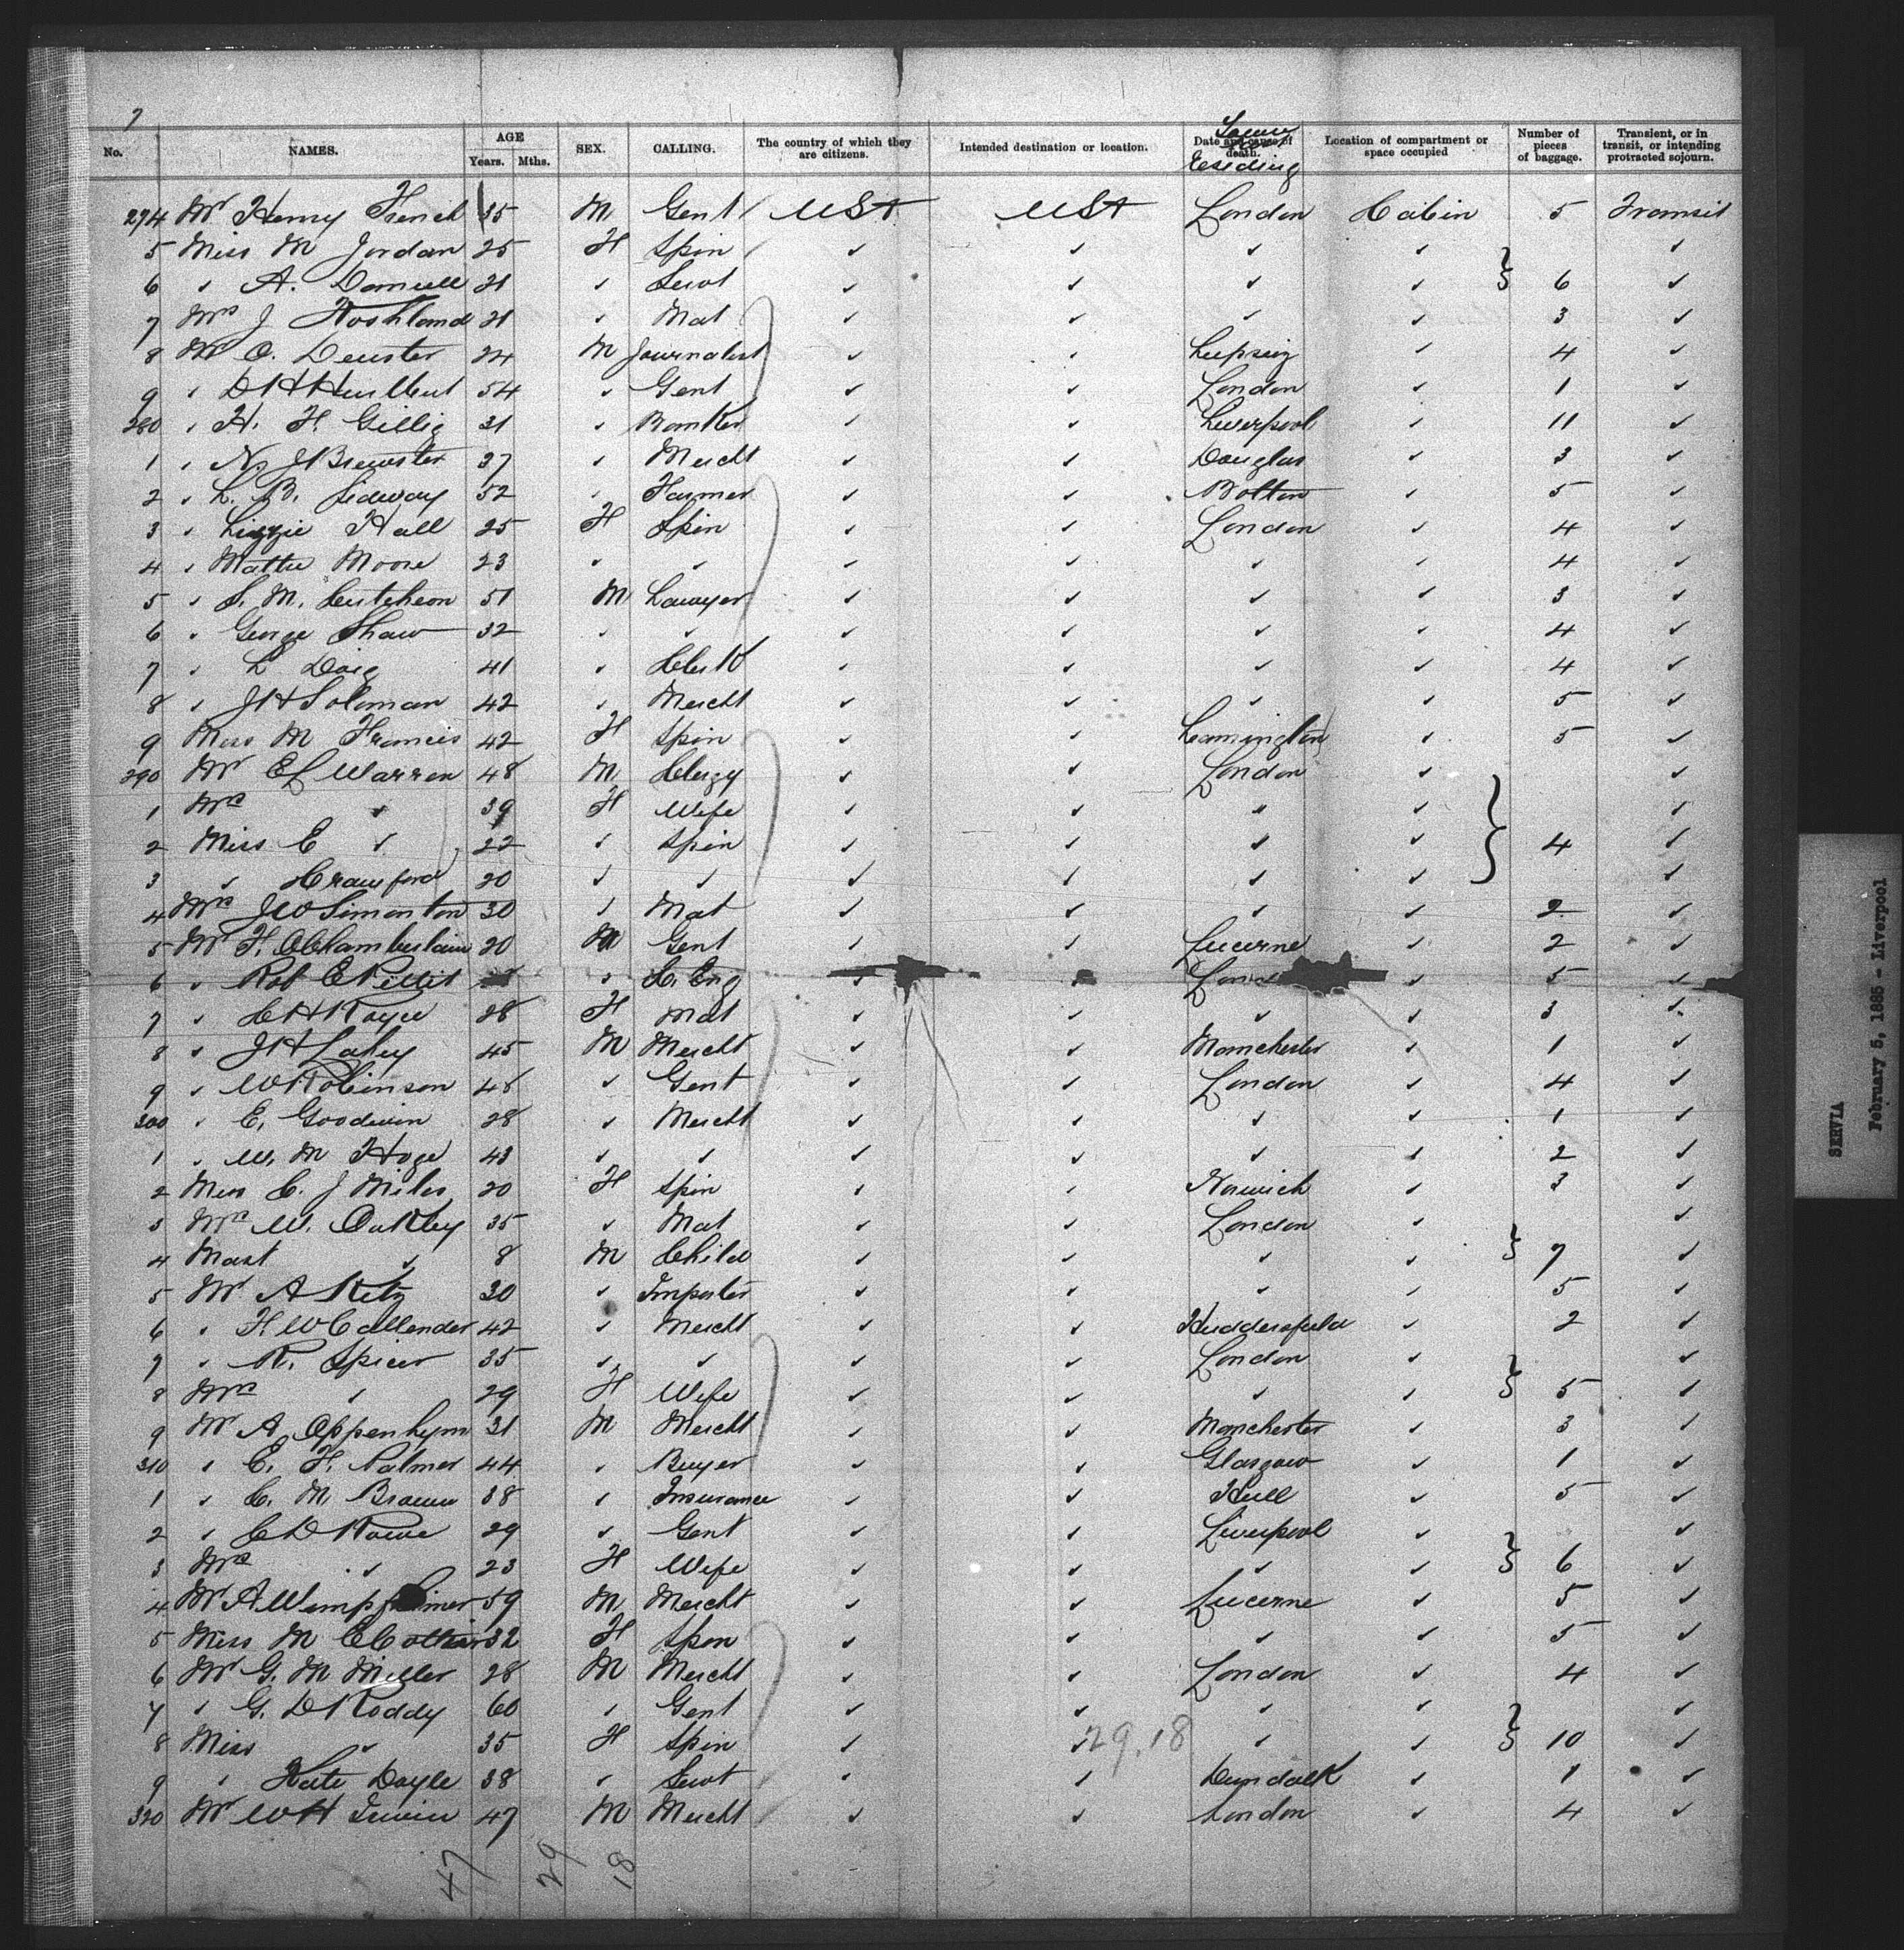 7
No. NAMES. AGE Years. Mths. SEX. CALLING. The country of which they are citizens. Intended destination or location. Date and cause of death. residing Location of compartment or space occupied Number of pieces of baggage. Transient, or in transit, or intending protracted sojourn.
274 Mr Henry French 35 M Gent USA USA London Cabin 5 Transit
5 Miss M Jordan 25 F Spin ✓ ✓ ✓ ✓ ✓
6 ✓ A. 21 ✓ Servt ✓ ✓ ✓ ✓ } 6 ✓
7 Mrs J Koshland 21 ✓ Mat ✓ ✓ ✓ ✓ 3 ✓
8 Mr O. Deuster 24 M Journalist ✓ ✓ Leipsig ✓ 4 ✓
9 ✓ D H Hurlbut 54 ✓ Gent ✓ ✓ London ✓ 1 ✓
280 ✓ H. F. Gillig 31 ✓ Banker ✓ ✓ Liverpool ✓ 11 ✓
1 ✓ N. J Brewster 37 ✓ Mercht ✓ ✓ Douglas ✓ 3 ✓
2 ✓ L. B. Sidway 52 ✓ Farmer ✓ ✓ Bolton ✓ 5 ✓
3 ✓ Lizzie Hall 25 F Spin ✓ ✓ London ✓ 4 ✓
4 ✓ Mattie Moore 23 ✓ ✓ ✓ ✓ ✓ ✓ 4 ✓
5 ✓ S. M. Cutcheon 51 M Lawyer ✓ ✓ ✓ ✓ 3 ✓
6 ✓ George Shaw 32 ✓ ✓ ✓ ✓ ✓ ✓ 4 ✓
7 ✓ L Doig 41 ✓ Clerk ✓ ✓ ✓ ✓ 4 ✓
8 ✓ J H Soloman 42 ✓ Mercht ✓ ✓ ✓ ✓ 5 ✓
9 Miss M Francis 42 F Spin ✓ ✓ Leamington ✓ 5 ✓
290 Mr E L Warren 48 M Clergy ✓ ✓ London ✓ ✓
1 Mrs ✓ 39 F Wife ✓ ✓ ✓ ✓ ✓
2 Miss E ✓ 22 ✓ Spin ✓ ✓ ✓ ✓ } 4 ✓
3 ✓ Crawford 20 ✓ ✓ ✓ ✓ ✓ ✓ ✓
4 Mrs J W Simonton 30 ✓ Mat ✓ ✓ ✓ ✓ 2 ✓
5 Mr F. A Chamberlain 20 M Gent ✓ ✓ Lucerne ✓ 2 ✓
6 ✓ Rob E Pettit ✓ C. Eng ✓ ✓ ✓ 5 ✓
7 ✓ C H Royce 28 F Mat ✓ ✓ ✓ ✓ 3 ✓
8 ✓ J H Lahey 45 M Mercht ✓ ✓ Manchester ✓ 1 ✓
9 ✓ W Robinson 48 ✓ Gent ✓ ✓ London ✓ 4 ✓
300 ✓ E. Goodwin 28 ✓ Mercht ✓ ✓ ✓ ✓ 1 ✓
1 ✓ W. M Hoge 43 ✓ ✓ ✓ ✓ ✓ ✓ 2 ✓
2 Miss C. J Miles 20 F Spin ✓ ✓ Norwich ✓ 3 ✓
3 Mrs W. Oakley 35 ✓ Mat ✓ ✓ London ✓ ✓
4 Mast ✓ 8 M Child ✓ ✓ ✓ ✓ } 7 ✓
5 Mr A Kitz 30 ✓ Importer ✓ ✓ ✓ ✓ 5 ✓
6 ✓ H W Callender 42 ✓ Mercht ✓ ✓ Huddersfield ✓ 2 ✓
7 ✓ R. Spicer 35 ✓ ✓ ✓ ✓ London ✓ ✓
8 Mrs ✓ 29 F Wife ✓ ✓ ✓ ✓ } 5 ✓
9 Mr A Oppenhym 31 M Mercht ✓ ✓ Manchester ✓ 3 ✓
310 ✓ E. F. Palmer 44 ✓ Buyer ✓ ✓ Glasgow ✓ 1 ✓
1 ✓ C. M Brown 38 ✓ Insurance ✓ ✓ Hull ✓ 5 ✓
2 ✓ C D Rowe 29 ✓ Gent ✓ ✓ Liverpool ✓ ✓
3 Mrs ✓ 23 F Wife ✓ ✓ ✓ ✓ } 6 ✓
4 Mr A 59 M Mercht ✓ ✓ Lucerne ✓ 5 ✓
5 Miss M E 32 F Spin ✓ ✓ ✓ ✓ 5 ✓
6 Mr G. M Miller 28 M Mercht ✓ ✓ London ✓ 4 ✓
7 ✓ G. D Roddy 60 ✓ Gent ✓ ✓ ✓ ✓ ✓
8 Miss ✓ 35 F Spin ✓ ✓ 29.18 ✓ ✓ } 10 ✓
9 ✓ Kate Doyle 38 ✓ Servt ✓ ✓ Dundalk ✓ 1 ✓
320 Mr W H Irwin 47 M Mercht ✓ ✓ London ✓ 4 ✓
47 29 18
SERVIA
February 5, 1885 - Liverpool